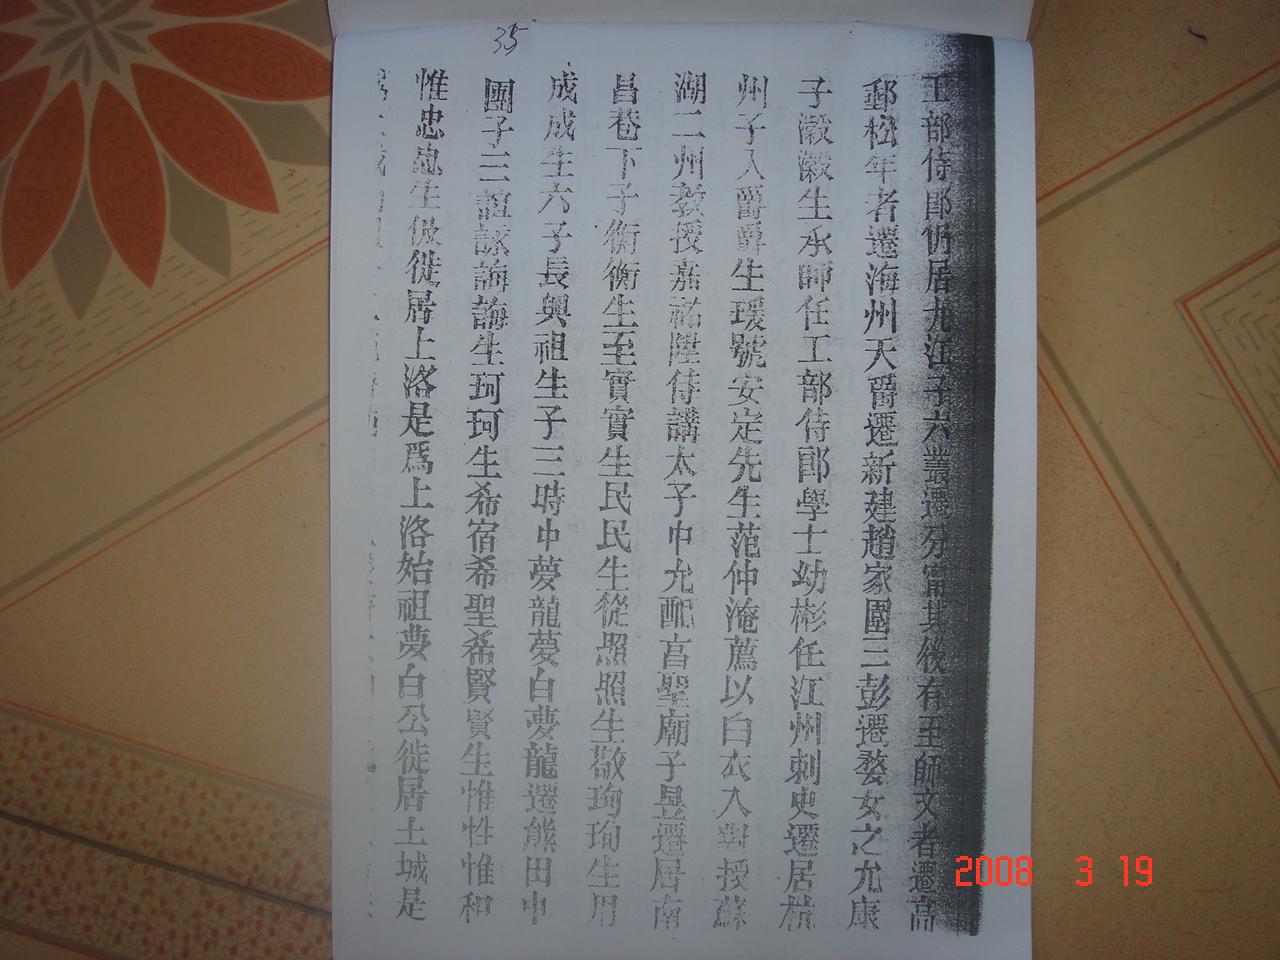 35
工部侍郎仍居九江子六叢遷分甯其後有至師文者遷高
郵松年者遷海州天爵遷新建趙家園三彭遷婺女之允康
子瀔瀔生承師任工部侍郎學士幼彬任江州刺史遷居杭
州子入爵爵生瑗號安定先生范仲淹薦以白衣入對授蘇
湖二州教授嘉祐陞侍講太子中允配享聖廟子昱遷居南
昌巷下子衡衡生至實實生民民生從照照生敬珣珣生用
成成生六子長興祖生子三時中夢龍夢白夢龍遷熊田中
團子三誼詠誨誨生珂珂生希宿希聖希賢賢生惟性惟和
惟忠忠生伋徙居上洛是爲上洛始祖夢白公徙居土城是
2008 3 19